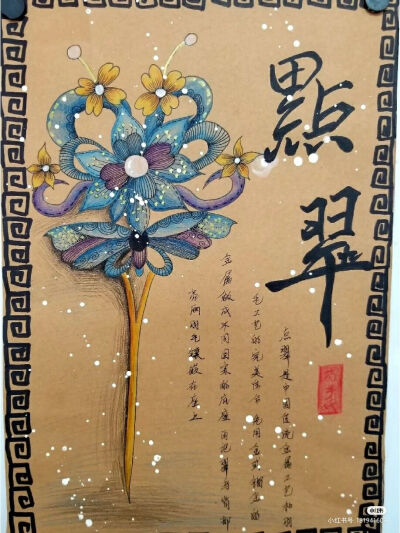 點翠
点翠是中国传统金属工艺和羽
毛工艺的完美结合 先用金或镏金的
金属做成不同图案的底座 再把翠鸟背部
亮丽羽毛镶嵌在座上
小红书
小红书号